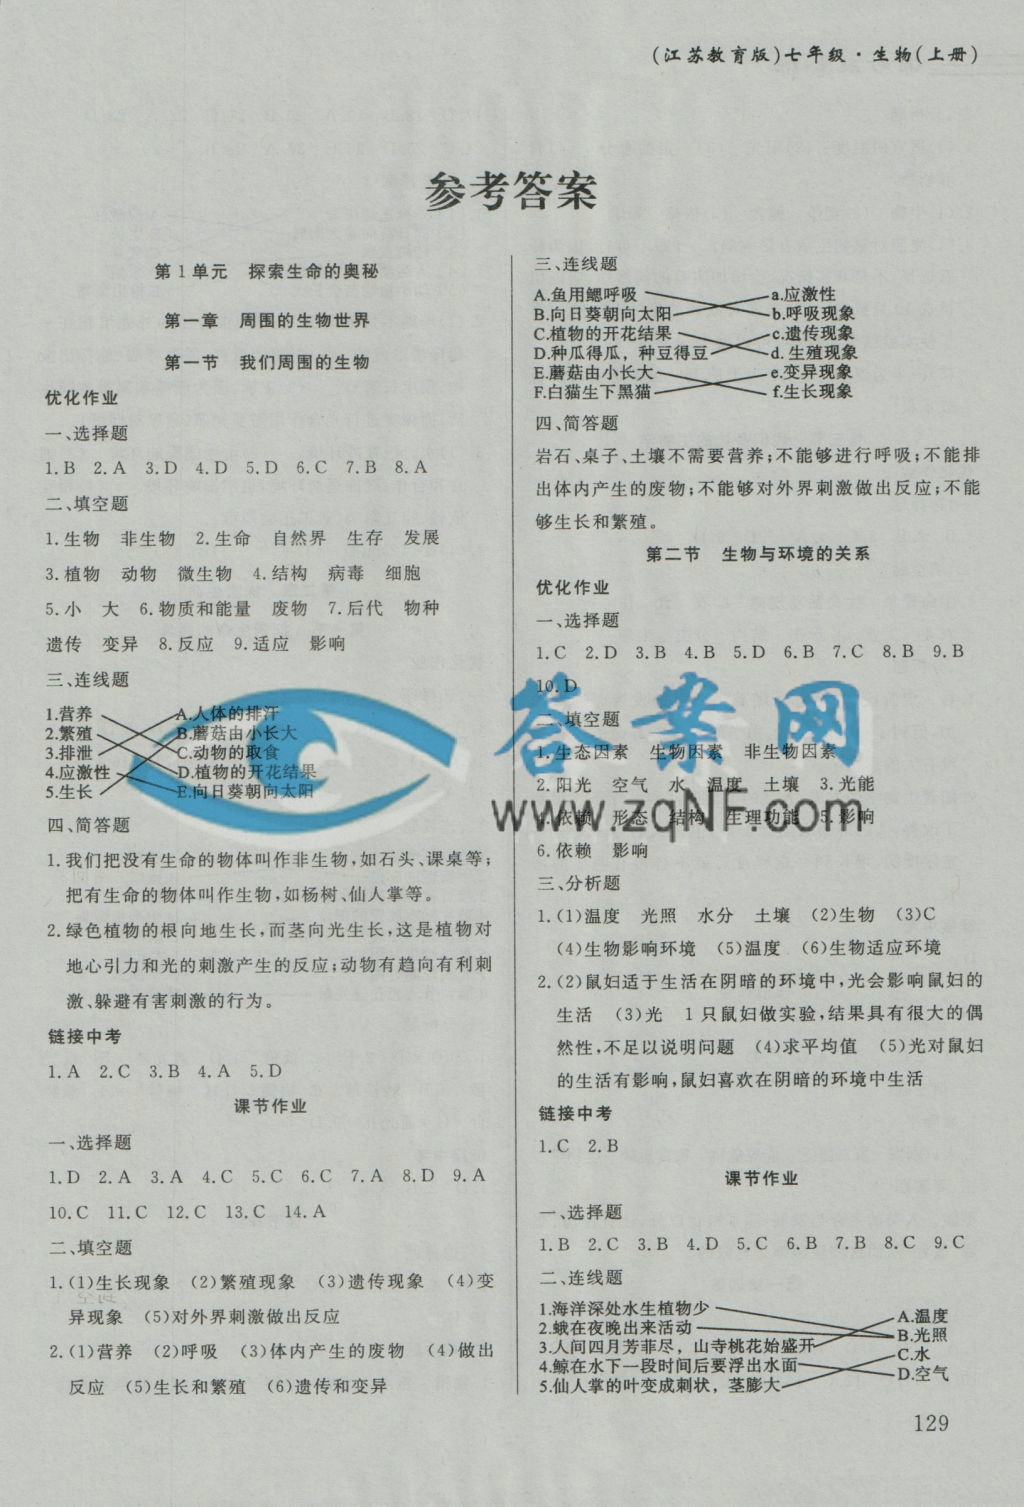 (江苏教育版)七年级·生物(上册)
参考答案
第1单元 探索生命的奥秘
第一章 周围的生物世界
第一节 我们周围的生物
优化作业
一、选择题
1.B 2.A 3.D 4.D 5.D 6.C 7.B 8.A
二、填空题
1.生物 非生物 2.生命 自然界 生存 发展
3.植物 动物 微生物 4.结构 病毒 细胞
5.小 大 6.物质和能量 废物 7.后代 物种
遗传 变异 8.反应 9.适应 影响
三、连线题
1.营养 A.人体的排汗
2.繁殖 B.蘑菇由小长大
3.排泄 C.动物的取食
4.应激性 D.植物的开花结果
5.生长 E.向日葵朝向太阳
四、简答题
1.我们把没有生命的物体叫作非生物,如石头、课桌等;
把有生命的物体叫作生物,如杨树、仙人掌等。
2.绿色植物的根向地生长,而茎向光生长,这是植物对
地心引力和光的刺激产生的反应;动物有趋向有利刺
激、躲避有害刺激的行为。
链接中考
1.A 2.C 3.B 4.A 5.D
课节作业
一、选择题
1.D 2.A 3.A 4.C 5.C 6.C 7.A 8.D 9.A
10.C 11.C 12.C 13.C 14.A
二、填空题
1.(1)生长现象 (2)繁殖现象 (3)遗传现象 (4)变
异现象 (5)对外界刺激做出反应
2.(1)营养 (2)呼吸 (3)体内产生的废物 (4)做出
反应 (5)生长和繁殖 (6)遗传和变异
三、连线题
A.鱼用鳃呼吸 a.应激性
B.向日葵朝向太阳 b.呼吸现象
C.植物的开花结果 c.遗传现象
D.种瓜得瓜，种豆得豆 d.生殖现象
E.蘑菇由小长大 e.变异现象
F.白猫生下黑猫 f.生长现象
四、简答题
岩石、桌子、土壤不需要营养;不能够进行呼吸;不能排
出体内产生的废物;不能够对外界刺激做出反应;不能
够生长和繁殖。
第二节 生物与环境的关系
优化作业
一、选择题
1.C 2.D 3.B 4.B 5.D 6.B 7.C 8.B 9.B
10.D
二、填空题
1.生态因素 生物因素 非生物因素
2.阳光 空气 水 温度 土壤 3.光能
4.依赖 形态 结构 生理功能 5.影响
6.依赖 影响
三、分析题
1.(1)温度 光照 水分 土壤 (2)生物 (3)C
(4)生物影响环境 (5)温度 (6)生物适应环境
2.(2)鼠妇适于生活在阴暗的环境中,光会影响鼠妇的
生活 (3)光 1只鼠妇做实验,结果具有很大的偶
然性,不足以说明问题 (4)求平均值 (5)光对鼠妇
的生活有影响,鼠妇喜欢在阴暗的环境中生活
链接中考
1.C 2.B
课节作业
一、选择题
1.B 2.C 3.B 4.D 5.C 6.B 7.B 8.C 9.C
二、连线题
1.海洋深处水生植物少 A.温度
2.蛾在夜晚出来活动 B.光照
3.人间四月芳菲尽，山寺桃花始盛开 C.水
4.鲸在水下一段时间后要浮出水面 D.空气
5.仙人掌的叶变成刺状，茎膨大
129
答案网
www.zqNF.com